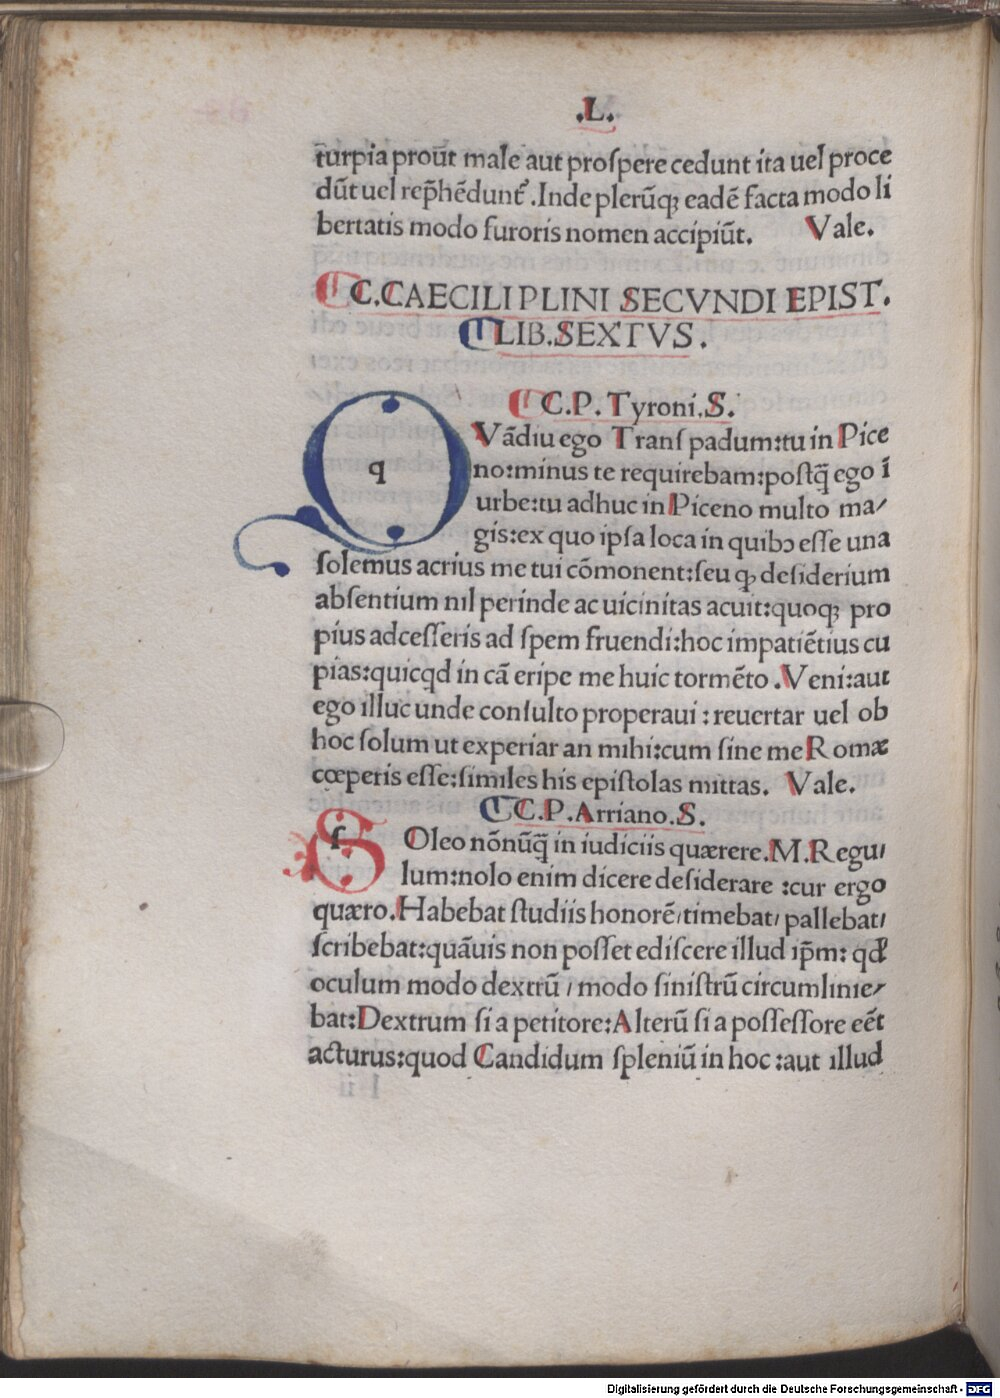 .L.
t̃urpia prou̅t male aut proſpere cedunt ita uel proce
du̅t uel rep̅he̅dunt᷑. Inde pleru̅qꝫ eade̅ facta modo li
bertatis modo furoris nomen accipiu̅t. Vale.
C.CAECILI PLINI SECVNDI EPIST.
LIB.SEXTVS.
C.P. Tyroni.S.
q
Va̅diu ego Tranſ padum:tu in Pice
no:minus te requirebam:poſtq̅ ego i̅
urbe:tu adhuc in Piceno multo ma/
gis:ex quo ipſa loca in quibꝰ eſſe una
ſolemus acrius me tui co̅monent:ſeu qꝫ deſiderium
abſentium nil perinde ac uicinitas acuit:quoqꝫ pro
pius adceſſeris ad ſpem fruendi:hoc impatie̅tius cu
pias:quicqd in ca̅ eripe me huic torme̅to .Veni:aut
ego illuc unde conſulto properaui : reuertar uel ob
hoc ſolum ut experiar an mihi:cum ſine me Romæ
cœperis eſſe:ſimiles his epiſtolas mittas. Vale.
C.P.Arriano.S.
ſ
Oleo no̅nu̅q̅ in iudiciis quærere.M.Regu/
lum:nolo enim dicere deſiderare :cur ergo
quæro.Habebat ſtudiis honore̅/timebat/ pallebat/
ſcribebat:qua̅uis non poſſet ediſcere illud ip̅m: qd̕
oculum modo dextru̅ / modo ſiniſtru̅ circumlinie/
bat:Dextrum ſi a petitore:Alteru̅ ſi a poſſeſſore ee̅t
acturus:quod Candidum ſpleniu̅ in hoc :aut illud
Digitalisierung gefördert durch die Deutsche Forschungsgemeinschaft - DFG